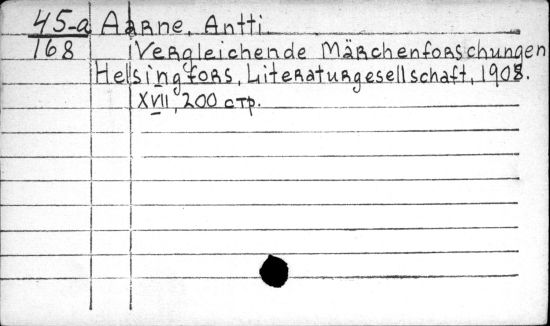 45-a Aarne, Antti
168 Vergleichende Märchenforschungen
Helsingfors, Literaturgesellschaft, 1908.
XVII, 200 стр.